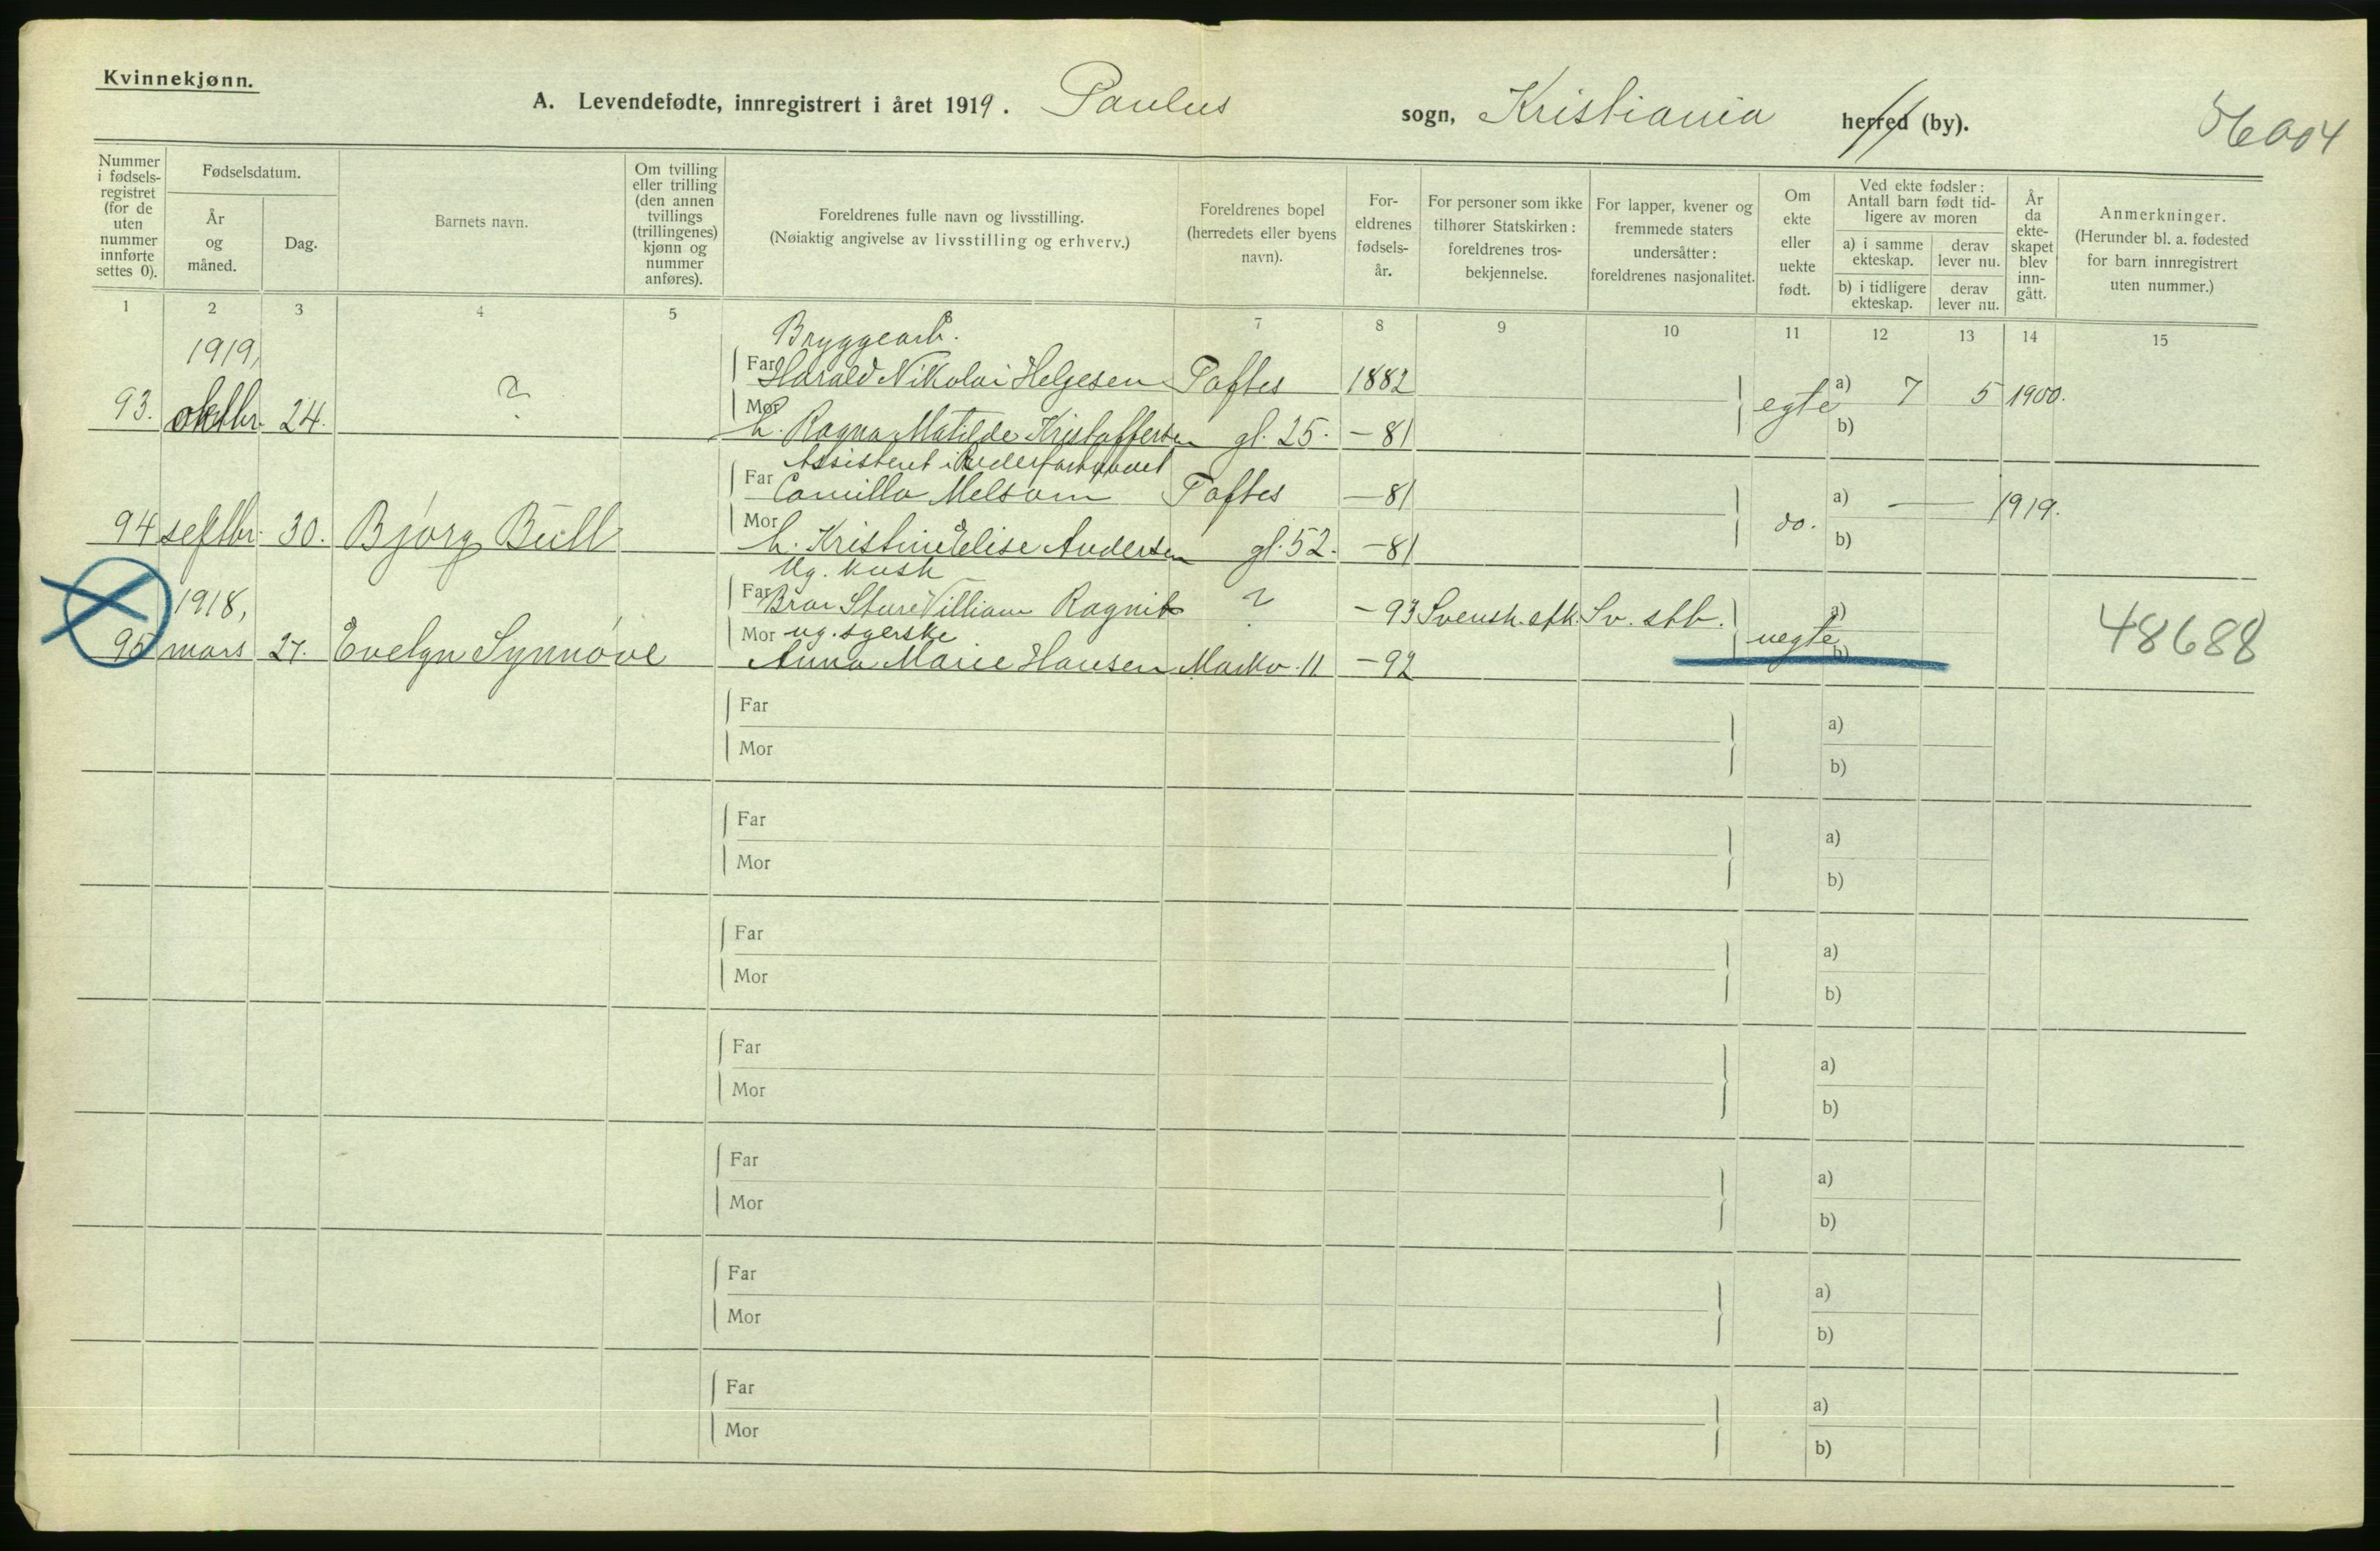 Kvinnekjønn.
A. Levendefødte, innregistrert i året 1919. Paulus sogn, Kristiania herred (by).
Nummer i fødsels- registret (for de uten nummer innførte settes 0).
Fødselsdatum.
År og måned.
Dag.
Barnets navn.
Om tvilling eller trilling (den annen tvillings (trillingenes) kjønn og nummer anføres).
Foreldrenes fulle navn og livsstilling.
(Nøiaktig angivelse av livsstilling og erhverv.)
Foreldrenes bopel (herredets eller byens navn).
For- eldrenes fødsels- år.
For personer som ikke tilhører Statskirken: foreldrenes tros- bekjennelse.
For lapper, kvener og fremmede staters undersåtter: foreldrenes nasjonalitet.
Om ekte eller uekte født.
Ved ekte fødsler: Antall barn født tid- ligere av moren
a) i samme ekteskap.
derav lever nu.
b) i tidligere ekteskap.
derav lever nu.
År da ekte- skapet blev inn- gått.
Anmerkninger.
(Herunder bl. a. fødested for barn innregistrert uten nummer.)
1 2 3 4 5 6 7 8 9 10 11 12 13 14 15
1919, Bryggearb.
Far Harald Nikolai Helgesen Toftes 1882
93. oktbr. 24. ? egte a) 7 5 1900.
Mor h. Ragna Matilde Kristoffersen gl. 25. - 81 b)
Assistent i
Far Camillo Melsom Toftes - 81
94 septbr. 30. Bjørg Bull do. a) — 1919.
Mor h. Kristine Elise Andersen gl. 52. - 81 b)
Ug. kusk
1918, Far Bror Sture Villiam Ragnit ? - 93 Svensk. stk. Sv. stb. a) 48688
95 mars 27. Evelyn Synnøve uegte
Mor ug. syerske
Anna Marie Hansen Markv. 11 - 92 b)
Far a)
Mor b)
Far a)
Mor b)
Far a)
Mor b)
Far a)
Mor b)
Far a)
Mor b)
Far a)
Mor b)
Far a)
Mor b)